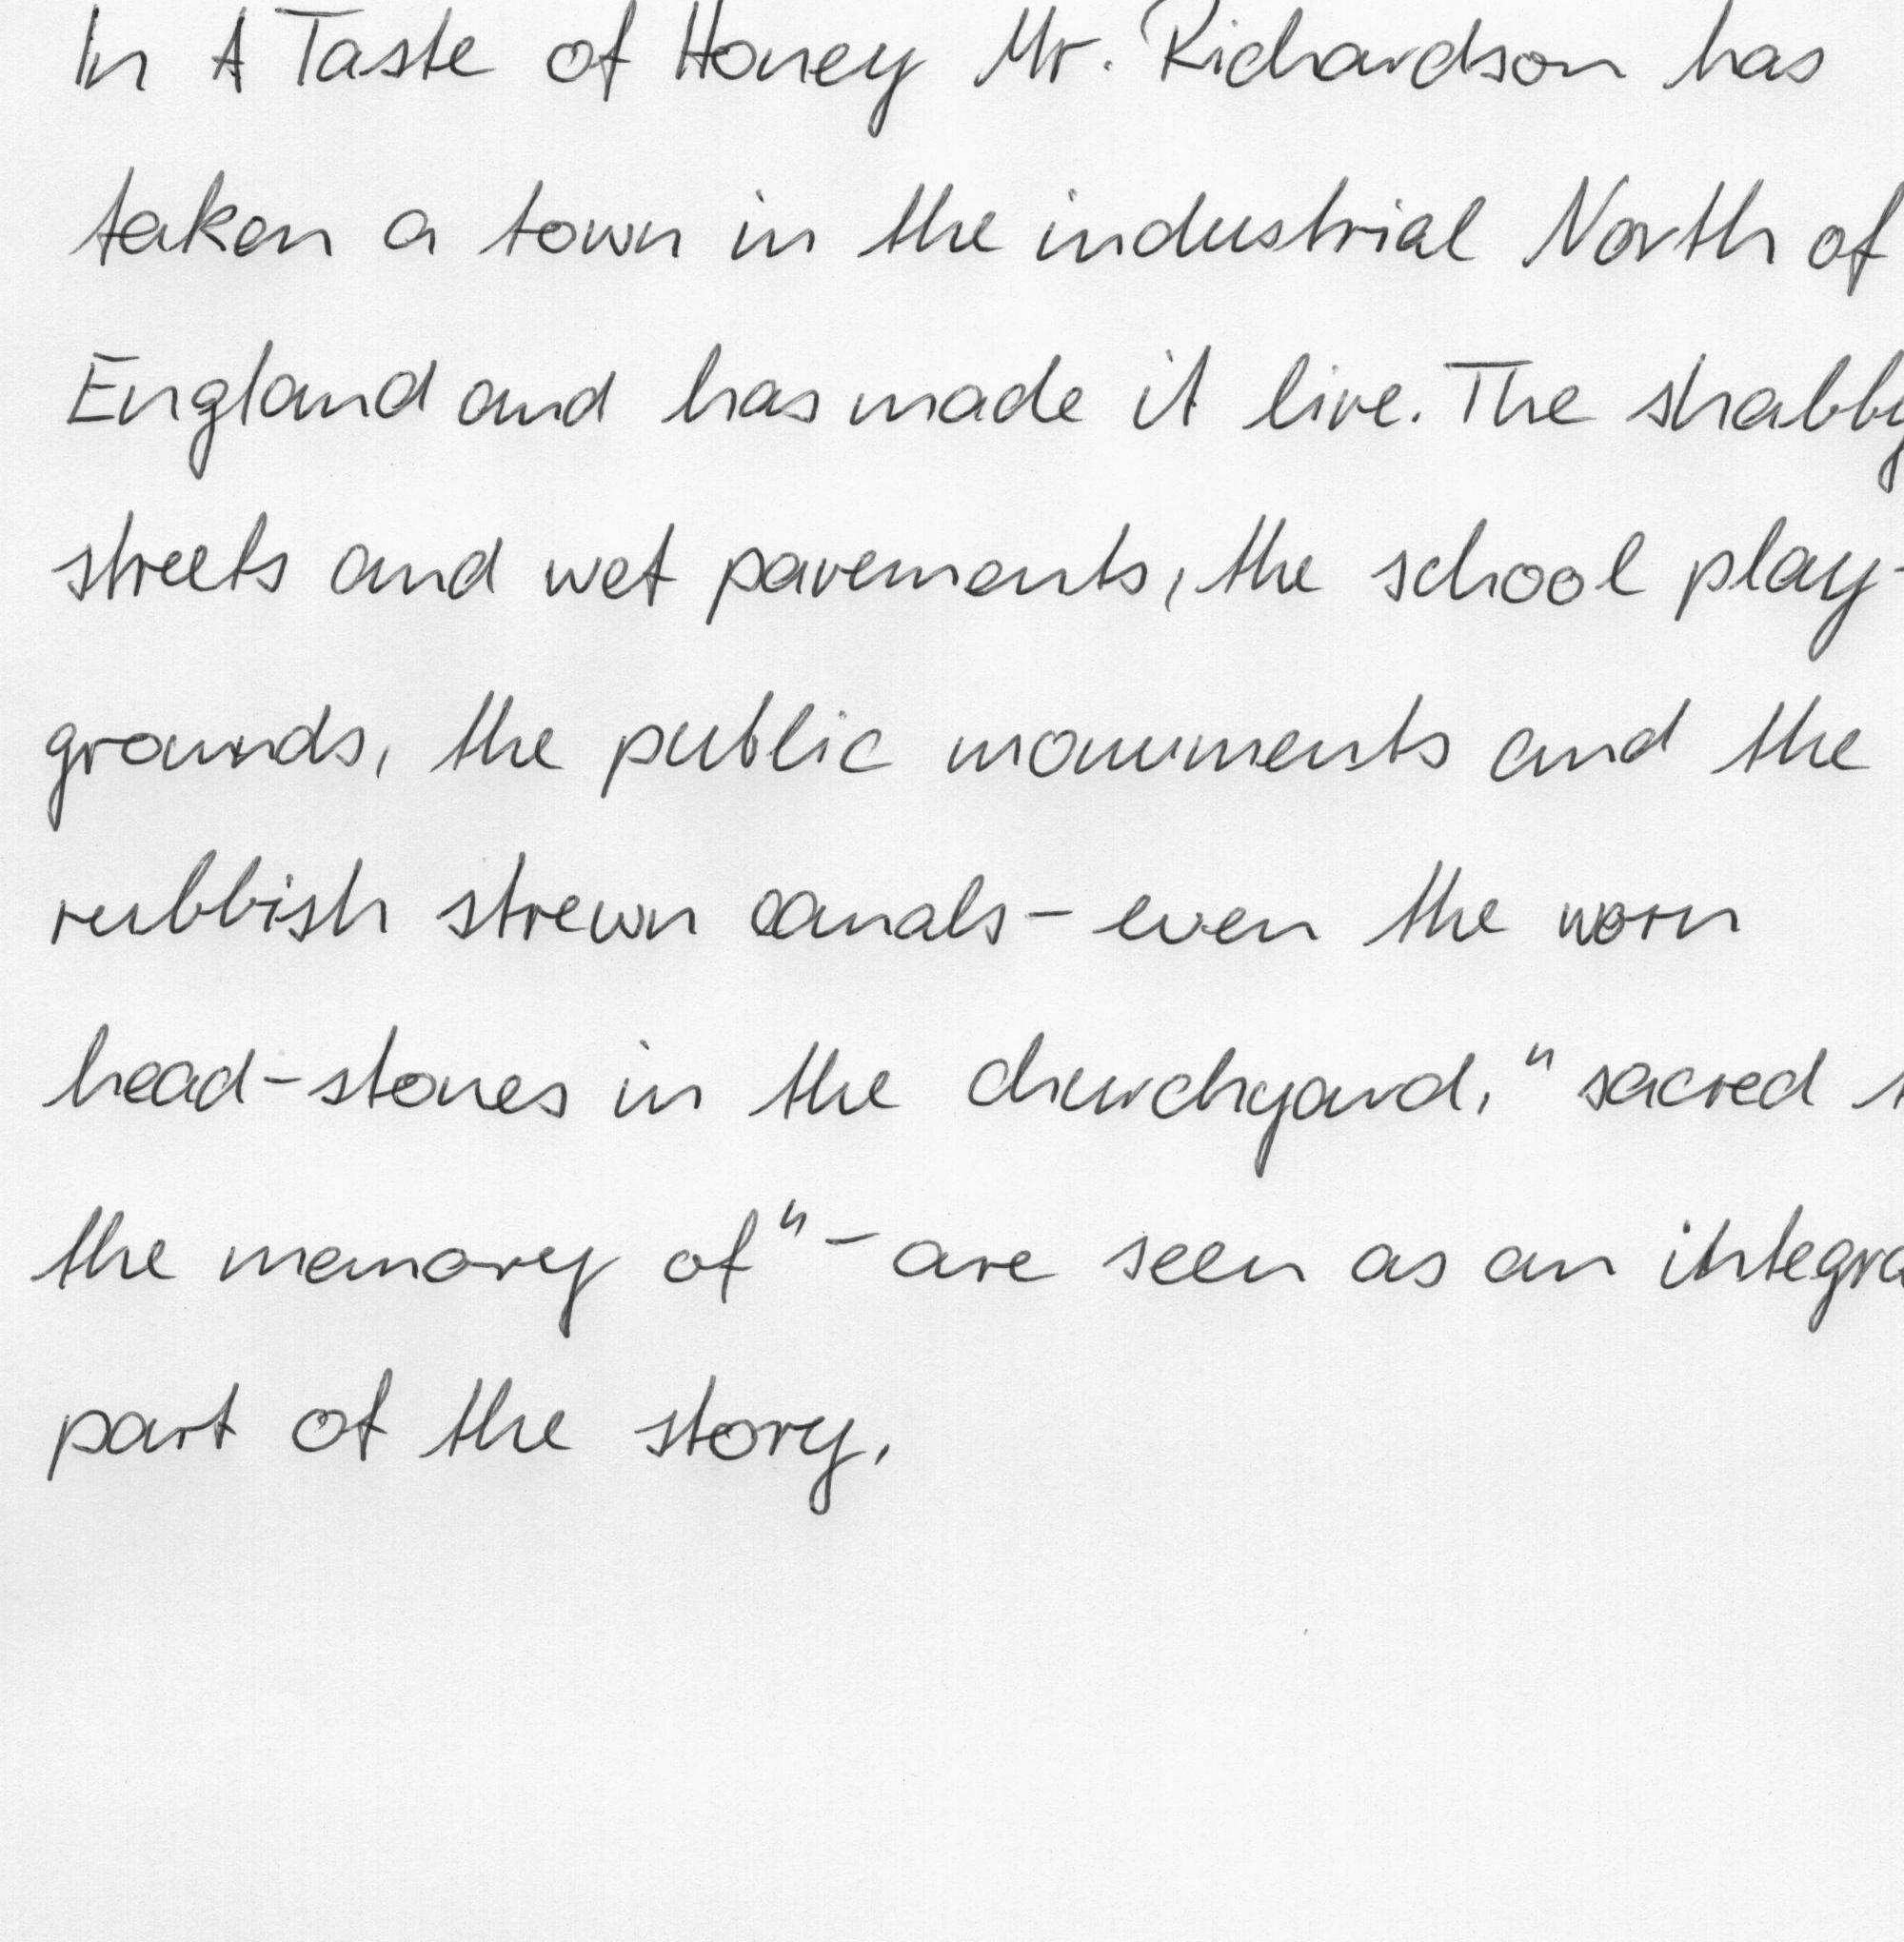 In A Taste of Honey Mr. Richardson has
taken a town in the industrial North of
England and has made it live. The shabby
streets and wet pavements, the school play-
grounds, the public monuments and the
rubbish strewn canals - even the worn
head-stones in the churchyard, "sacred
the memory of" - are seen as an integra
part of the story.